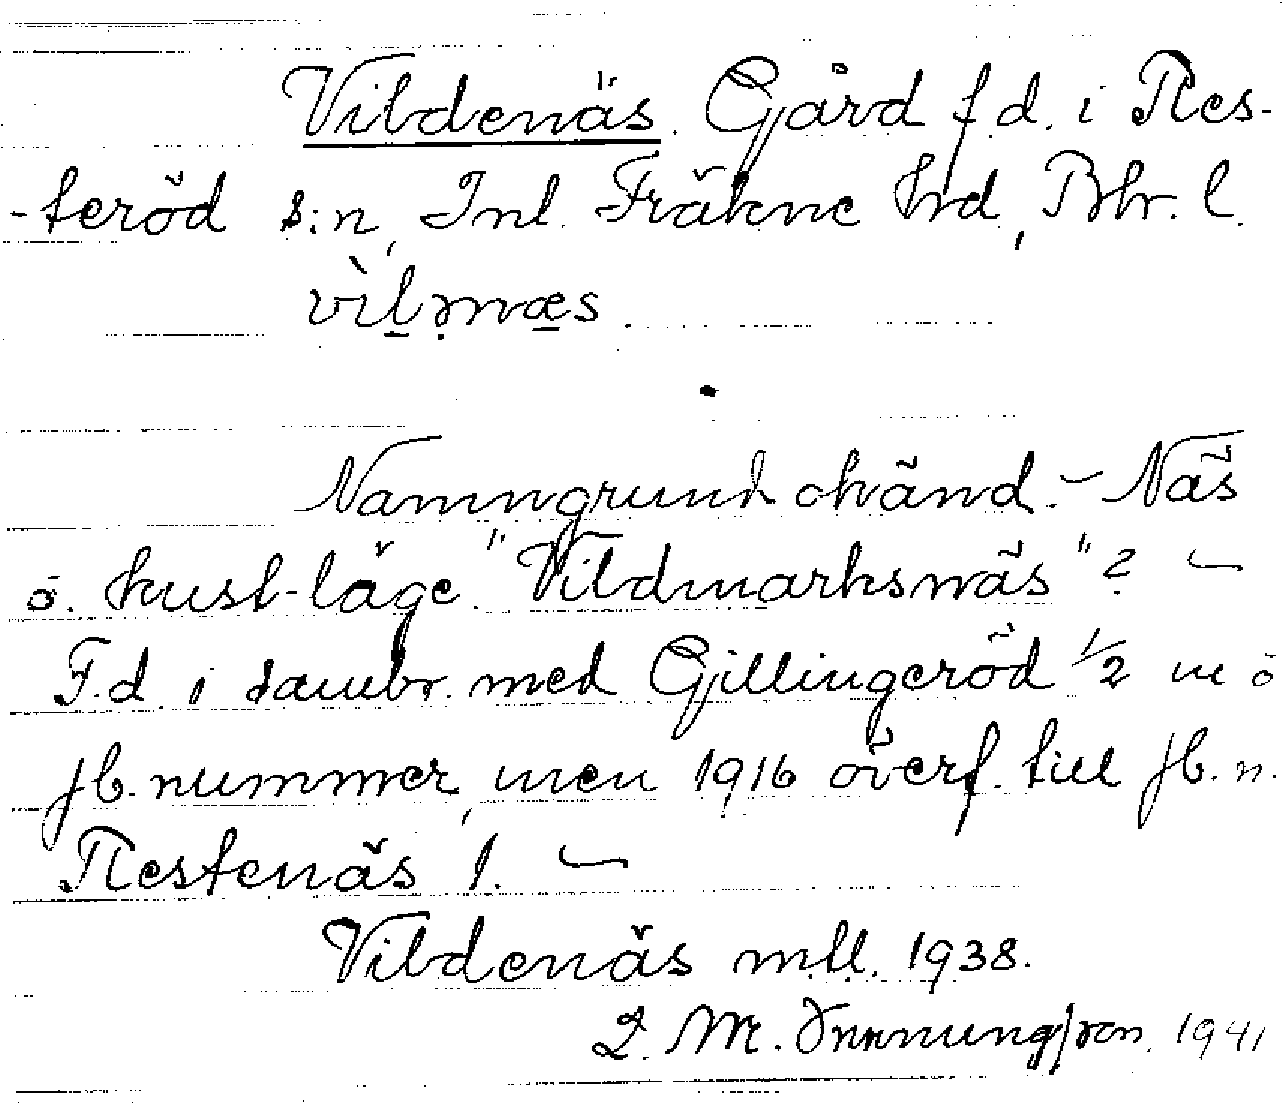 Vildenäs. Gård f.d. i Res-
-teröd s:n, Inl. Fräkne hrd, Bhr. l.
vìl̠ənæ̠s.
Namngrund okänd. – Näs
ö. kust-läge. "Vildmarksnäs"? –
F.d. i sambr. med Gjillingeröd 1/2 m ö
jb. nummer, men 1916 överf. till jb. n.
Restenäs 1. –
Vildenäs mtl. 1938.
1941